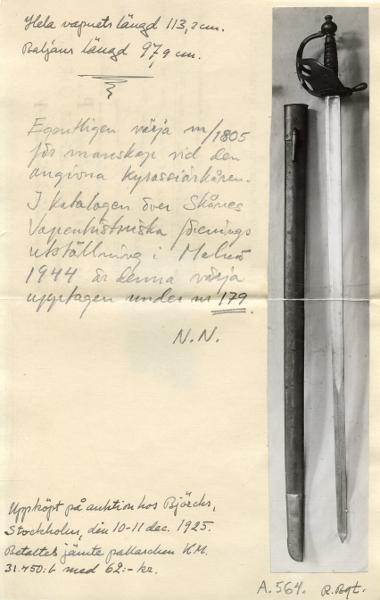 Hela vapnets längd 113,2 cm.
Baljans längd 97,9 cm.
Egentligen värja m/1805
för manskap vid den
angivna kyrassiärkåren.
I katalogen över Skånes
Vapenhistoriska förenings
utställning i Malmö
1944 är denna värja
upptagen under nr 179.
N.N.
Uppköpt på auktion hos Björcks,
Stockholm, den 10-11 dec. 1925.
Betaltes jämte pallaschen
31.450:b med 62:- kr.
A.564. R.Bgt.